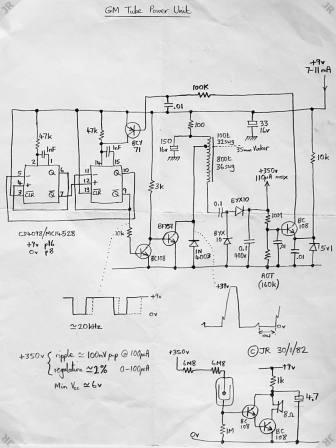 GM Tube Power Unit
+9v
7-11mA
100K
.01
47k
1nF
47k
1nF
BCY
71
100
150
16v
33
16v
100t
32swg
35mm Vinkor
800t
36swg
+350v
110µA max
10k
2
1
14
15
5
4
3
6
7
11
12
13
10
9
+
Q
Q
CLR
+
Q
Q
CLR
3k
10k
0.1
BYX10
BYX
10
0.1
400v
10M
BC
108
.01
5v1
BC108
BFY51
1N
4002
AOT
(160k)
CD4098/MC14528
+9v p16
0v p8
+9v
0v
≃20kHz
+38v
0v
© JR 30/1/82
+350v
ripple ≃ 100mV p-p @ 100µA
regulation ≃ 2% 0-100µA
Min Vcc ≃ 6v
+350v
4M8
4M8
+9v
1k
4.7
8Ω
1M
BC
108
BC
108
0v